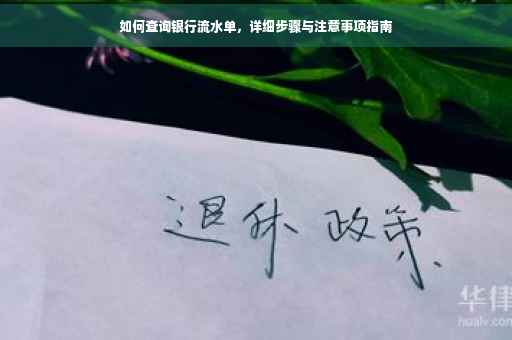 如何查询银行流水单，详细步骤与注意事项指南
退休政策
华律
hualv.com